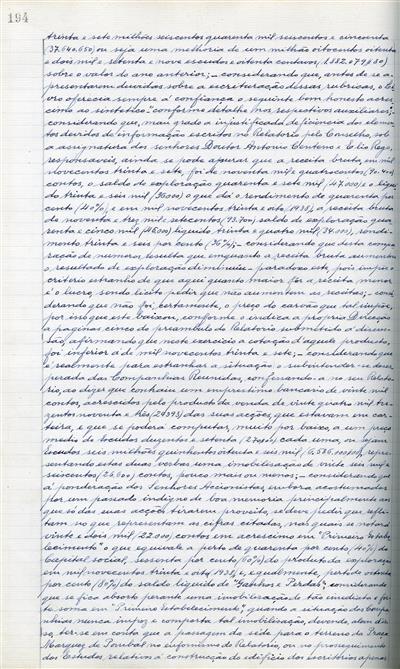 194
trinta e sete milhões seiscentos quarenta mil seiscentos e cincoenta
(37.640.650) ou seja uma melhoria de um milhão oitocentos oitenta
e dois mil e setenta e nove escudos e oitenta centavos (1.882.079$80)
sobre o valor do ano anterior; - considerando que, antes de se a
presentarem duvidas sobre a escrituração dessas rubricas, o
oferecia sempre á confiança o seguinte bom honesto
conforme detalhe nos respectivos auxiliares;
considerando que, mau grado a injustificada deficiencia dos elemen
tos devidos de informação escritos no Relatorio pelo Conselho, sob
a assignatura dos senhores Doctor Antonio Centeno e Clio Rego,
responsaveis, ainda se pode apurar que a receita bruta, em mil
novecentos trinta e sete, foi de noventa mil e quatrocentos (90.400)
contos, o saldo de exploração quarenta e sete mil (47.000) e o liqui
do trinta e seis mil (36000) o que dá o rendimento de quarenta por
cento (40%), e em mil novecentos trinta e oito (1938), a receita bruta
de noventa e trez mil e setecentos (93.700) saldo de exploração qua
renta e cinco mil (45000) liquido trinta e quatro mil (34.000), rendi-
mento trinta e seis por cento (36%); - considerando que desta compa
ração de numeros, resulta que emquanto a receita bruta aumentou
o resultado de exploração diminuiu - paradoxo este, pois impõe o
criterio estranho de que aqui quanto maior for a receita, menor
é o lucro, sendo licito pedir que não aumentem as receitas; - consi
derando que não foi, certamente, o preço do carvão que tal impôz,
por isso que este baixou, conforme o indica a própria Direcção
a paginas cinco do preambulo do Relatorio submetido á discus-
são, afirmando que neste exercicio a cotação d'aquele producto,
foi inferior á de mil novecentos trinta e sete; - considerando que
é realmente para estranhar a situação
perada das Companhias Reunidas, confessando-a no seu Relato
rio, ao dizer que contraiu um emprestimo bancario, de vinte mil
contos, acrescidos pelo producto da venda de vinte quatro mil tre
zentos noventa e três (24393) das suas acções, que estavam em car-
teira, e que se poderá computar, muito por baixo, a um preço
medio de escudos duzentos e setenta (270$00) cada uma, ou sejam
escudos seis milhões quinhentos oitenta e seis mil (6.586.000$00), repre-
sentando estas duas verbas uma imobilisação de vinte seis mil e
seiscentos (26.600) contos, pouco mais ou menos; - considerando que
á ponderação dos Senhores Accionistas, embora acostumados
por um passado indigno de boa memoria principalmente aos
que só das suas acções tirarem proveito, se deve pedir que refli-
tam no que representam as cifras citadas, nas quais se notará
vinte e dois mil (22.000) contos em acrescimo em "Primeiro Esta-
belecimento" o que equivale a perto de quarenta por cento (40%) do
capital social, sessenta por cento (60%) do producto da exploração
em mil novecentos trinta e oito (1938), e egualmente, perto de oitenta
por cento (80%) do saldo liquido de "Ganhos e Perdas"; considerando
que se fica absorto perante uma imobilisação de tão imediata e for
te soma em "Primeiro Estabelecimento", quando a situação das Compa
nhias nunca impoz e comporta tal imobilisação, devendo, alem dis-
so, ter-se em conta que a passagem da séde para o terreno da Praça
Marquez de Pombal no eufemismo do Relatorio, ou no proseguimento
dos Estudos relativos á construcção do edificio dos escritorios apenas